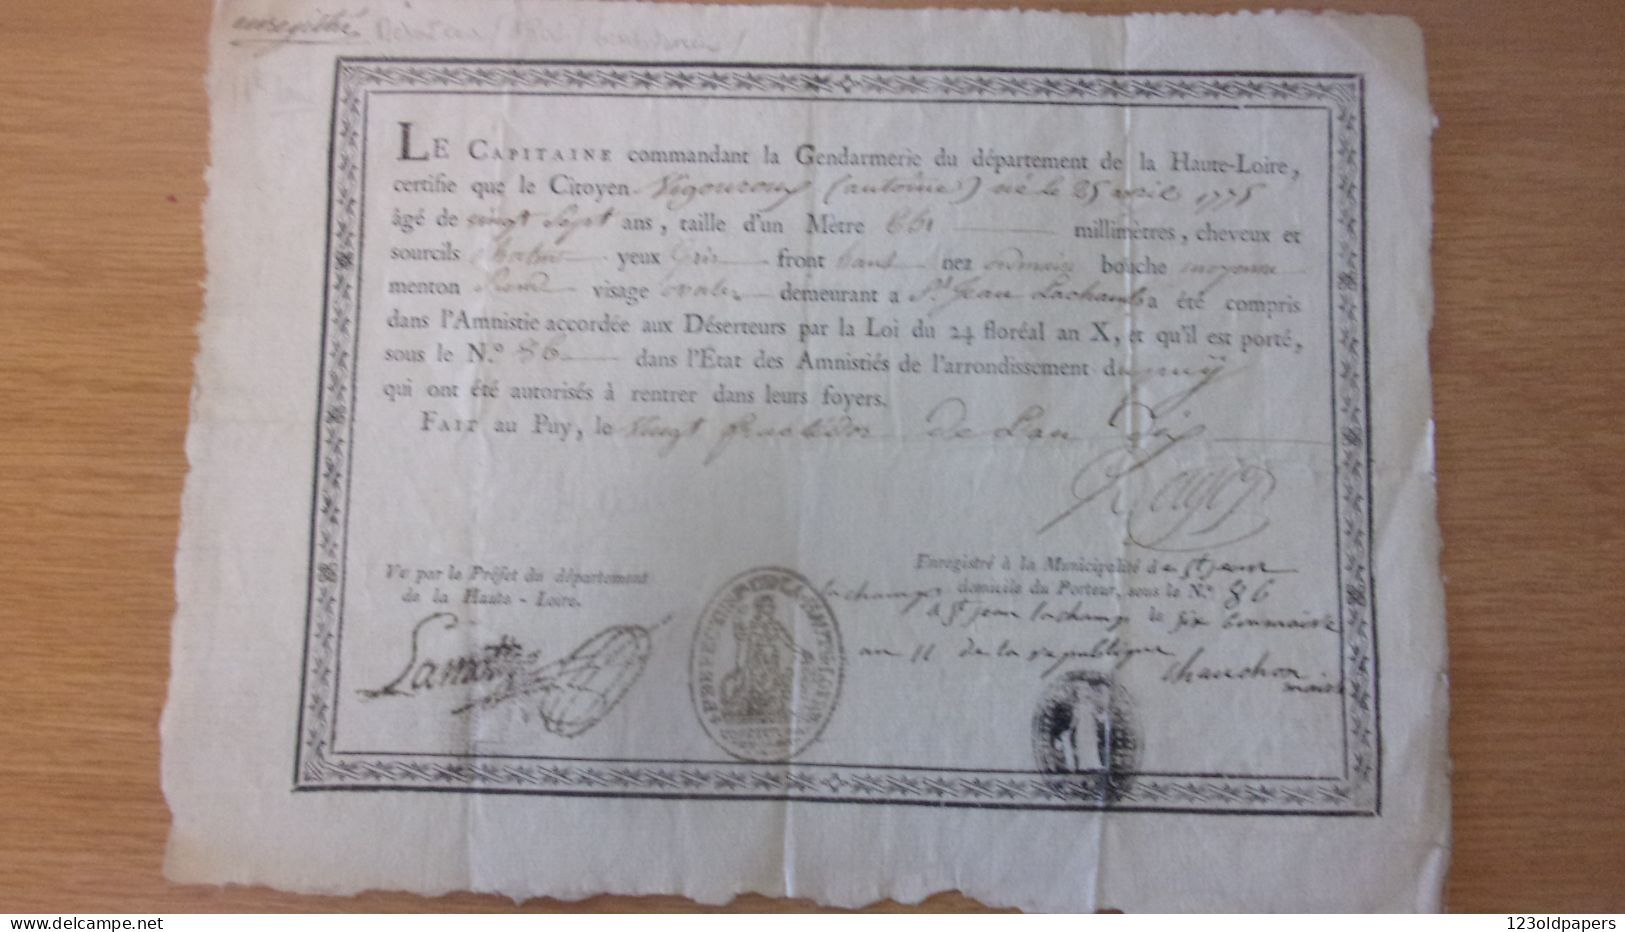 enregistré
LE CAPITAINE commandant la Gendarmerie du département de la Haute-Loire,
certifie que le Citoyen Vigouroux (antoine) né le 25 avril 1775
âgé de vingt Sept ans, taille d'un Mètre 661 millimètres, cheveux et
sourcils chatin yeux Gris front haut nez ordinaire bouche moyenne
menton Rond visage ovale demeurant a St Jean Lachamb a été compris
dans l'Amnistie accordée aux Déserteurs par la Loi du 24 floréal an X, et qu'il est porté,
sous le N.º 86 dans l'État des Amnistiés de l'arrondissement du puÿ
qui ont été autorisés à rentrer dans leurs foyers.
FAIT au Puy, le Vingt fructidor De L'an Dix
Vu par le Préfet du département
de la Haute-Loire.
Lamothe
Enregistré à la Municipalité de st jean
lachamp domicile du Porteur, sous le N.º 86
à st jean lachamp le six brumaire
an 11 de la republique
Chauchon
maire
123oldpapers